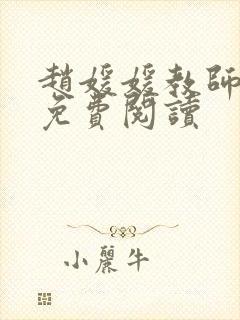 趙媛媛教師
免費閱讀
小麗牛